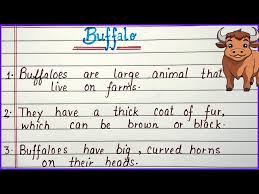 Buffalo
1. Buffaloes are large animal that
live on farms.
2. They have a thick coat of fur,
which can be brown or black.
3. Buffaloes have big, curved horns
on their heads.